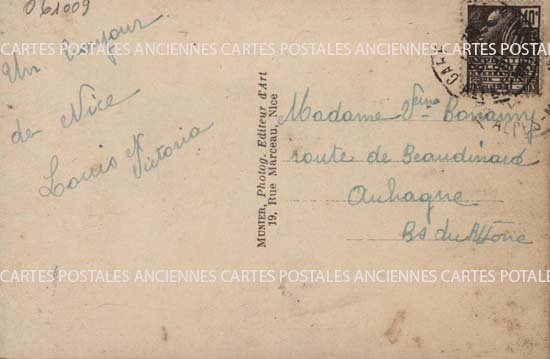 061009
Un Bonjour
de Nice
Louis et Victoria
MUNIER, Photog. Editeur d'Art
19, Rue Marceau, Nice
40c
Madame Vve Bonamy
route de Beaudinard
Aubagne
Bs du Rhône
CARTES POSTALES ANCIENNES CARTES POSTALES ANCIENNES CARTES POSTALES
CARTES POSTALES ANCIENNES CARTES POSTALES ANCIENNES CARTES POTALE